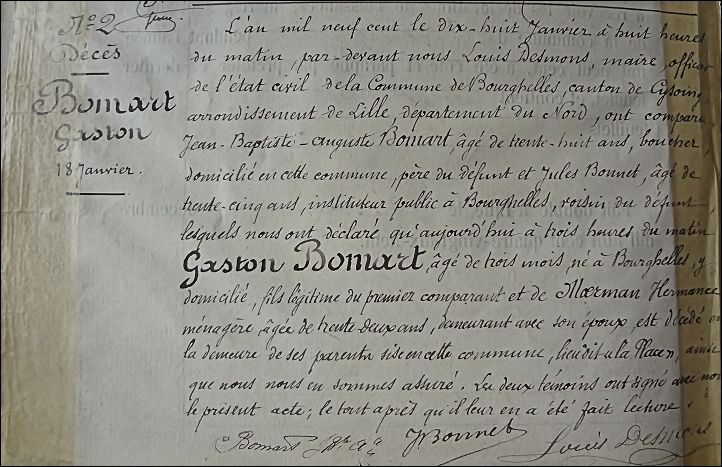 N.° 2
Décès
Bomart
Gaston
18 Janvier.
L'an mil neuf cent le dix-huit Janvier à huit heures
du matin, par-devant nous Louis Desmons, maire, officier
de l'état civil de la Commune de Bourghelles, canton de Cysoing,
arrondissement de Lille, département du Nord, ont comparu
Jean-Baptiste-auguste Bomart, âgé de trente-huit ans, boucher,
domicilié en cette commune, père du défunt et Jules Bonnet, âgé de
trente-cinq ans, instituteur public à Bourghelles, voisin du défunt
lesquels nous ont déclaré qu'aujourd'hui à trois heures du matin
Gaston Bomart, âgé de trois mois, né à Bourghelles, y
domicilié, fils légitime du premier comparant et de Moerman Hermance
ménagère, âgée de trente-deux ans, demeurant avec son époux, est décédé en
la demeure de ses parents sise en cette commune, lieu dit « la Place », ainsi
que nous nous en sommes assuré. Les deux témoins ont signé avec nous
le présent acte; le tout après qu'il leur en a été fait lecture.
Bomart J. Bonnet Louis Desmons